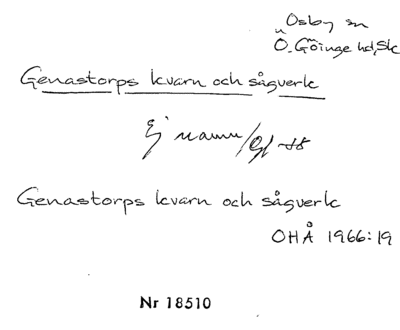 Osby sn
Ö. Göinge hd, Sk
Genastorps kvarn och sågverk
Ej namn
Genastorps kvarn och sågverk
OHÅ 1966:19
Nr 18510